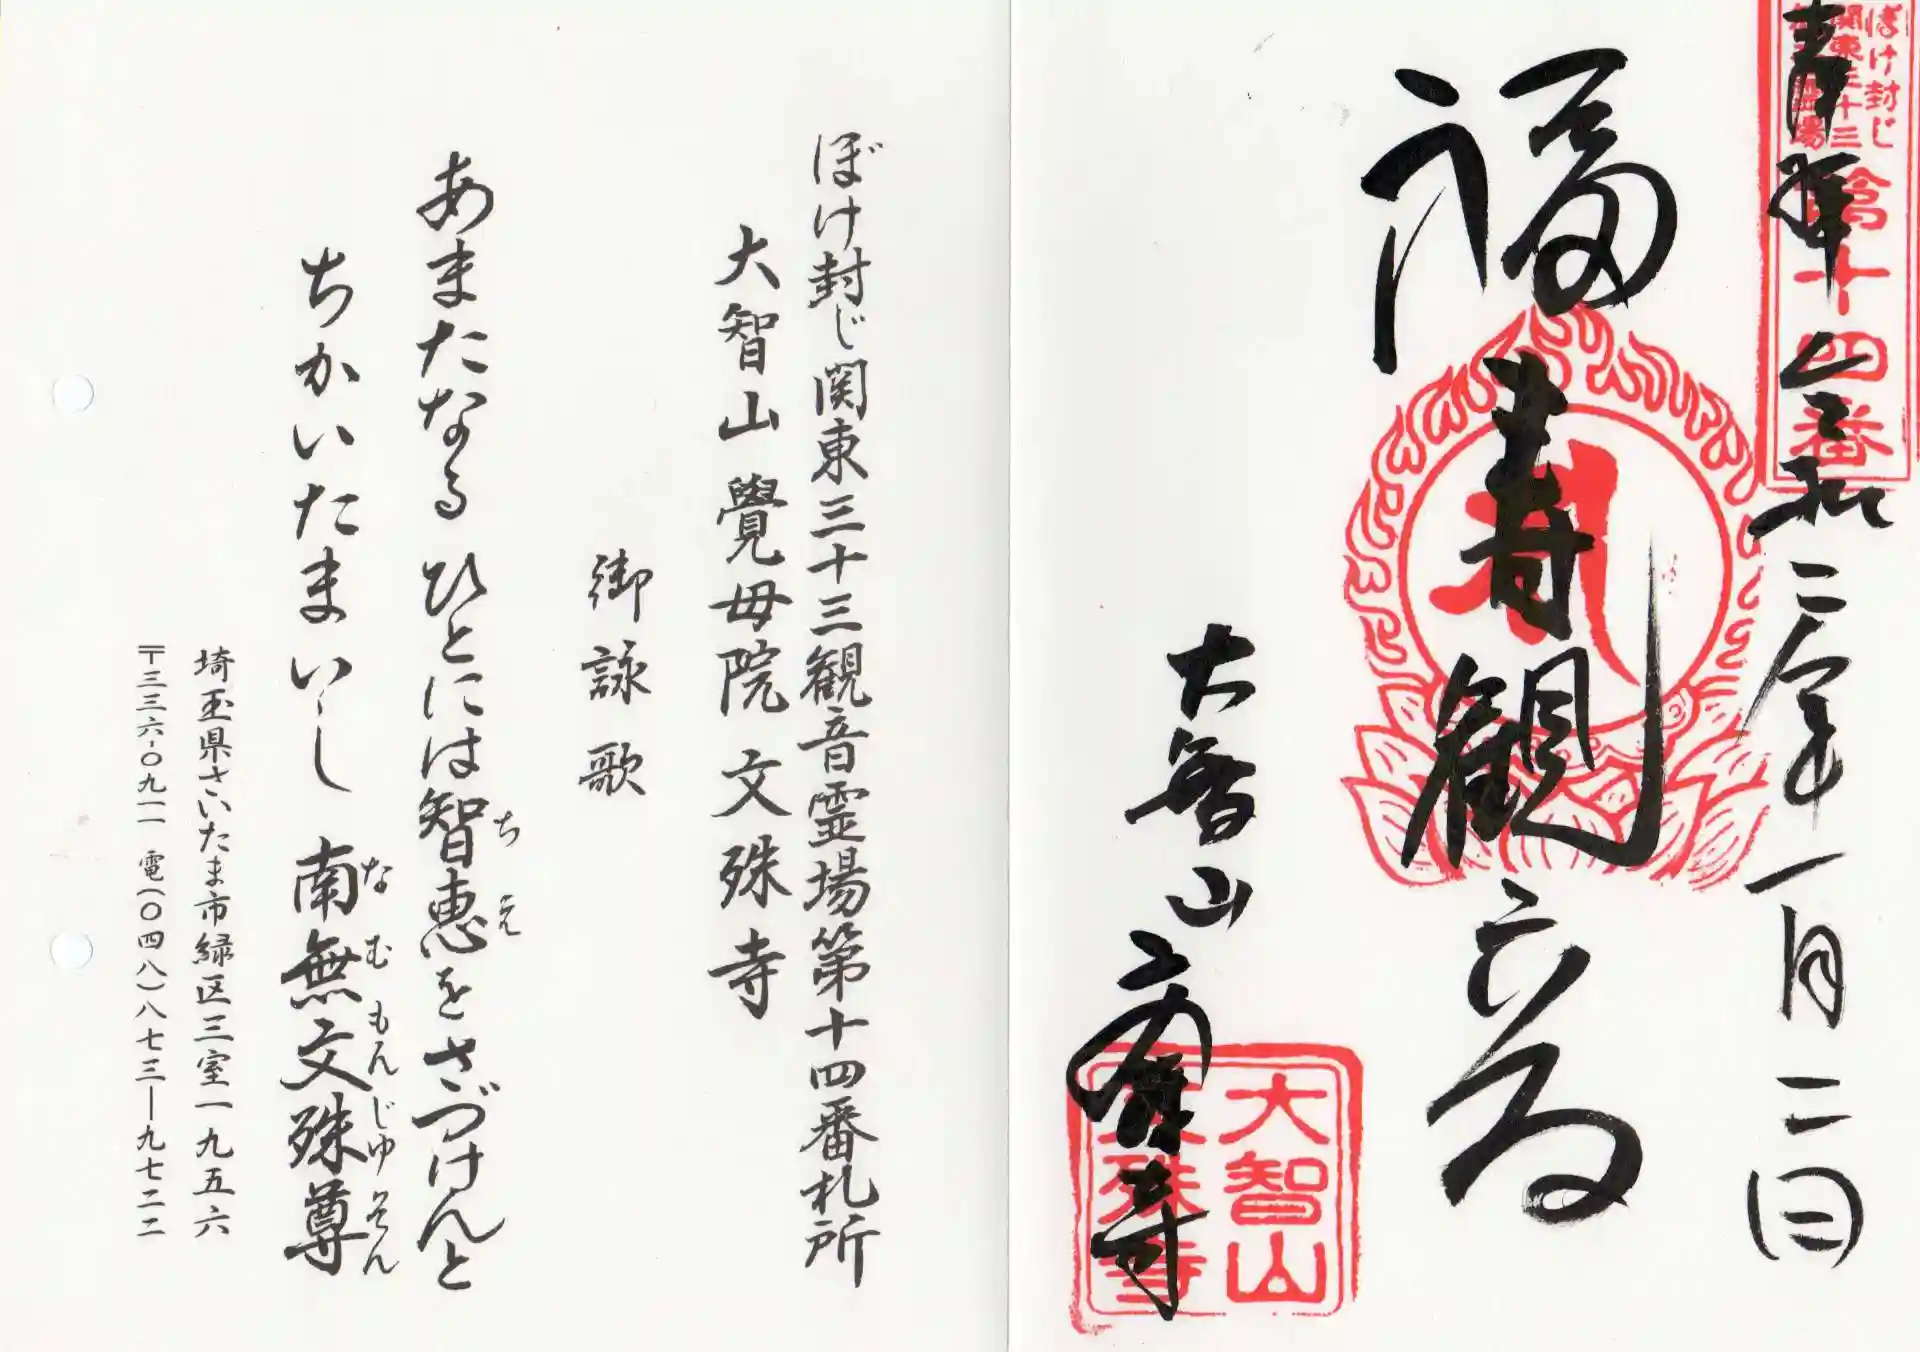 ぼけ封じ
関東三十三
第十四番
奉拝 令和二年一月二日
福寿観音
大智山 文殊寺
大智山
文殊寺
ぼけ封じ関東三十三観音霊場第十四番札所
大智山覺母院文殊寺
御詠歌
あまたなるひとには智恵をさづけんと
ちえ
ちかいたまいし 南無文殊尊
なむもんじゅそん
埼玉県さいたま市緑区三室一九五六
〒三三六-〇九一一 電(〇四八)八七三―九七二二